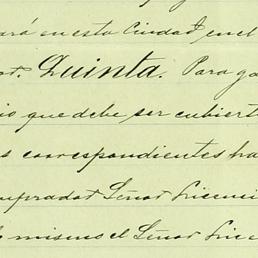 ará en esta Ciudad, en el
or. Quinta. Para ga
io que debe ser cubiert
s correspondientes ha
mprador Señor Licenci
lo mismo el Señor Lice